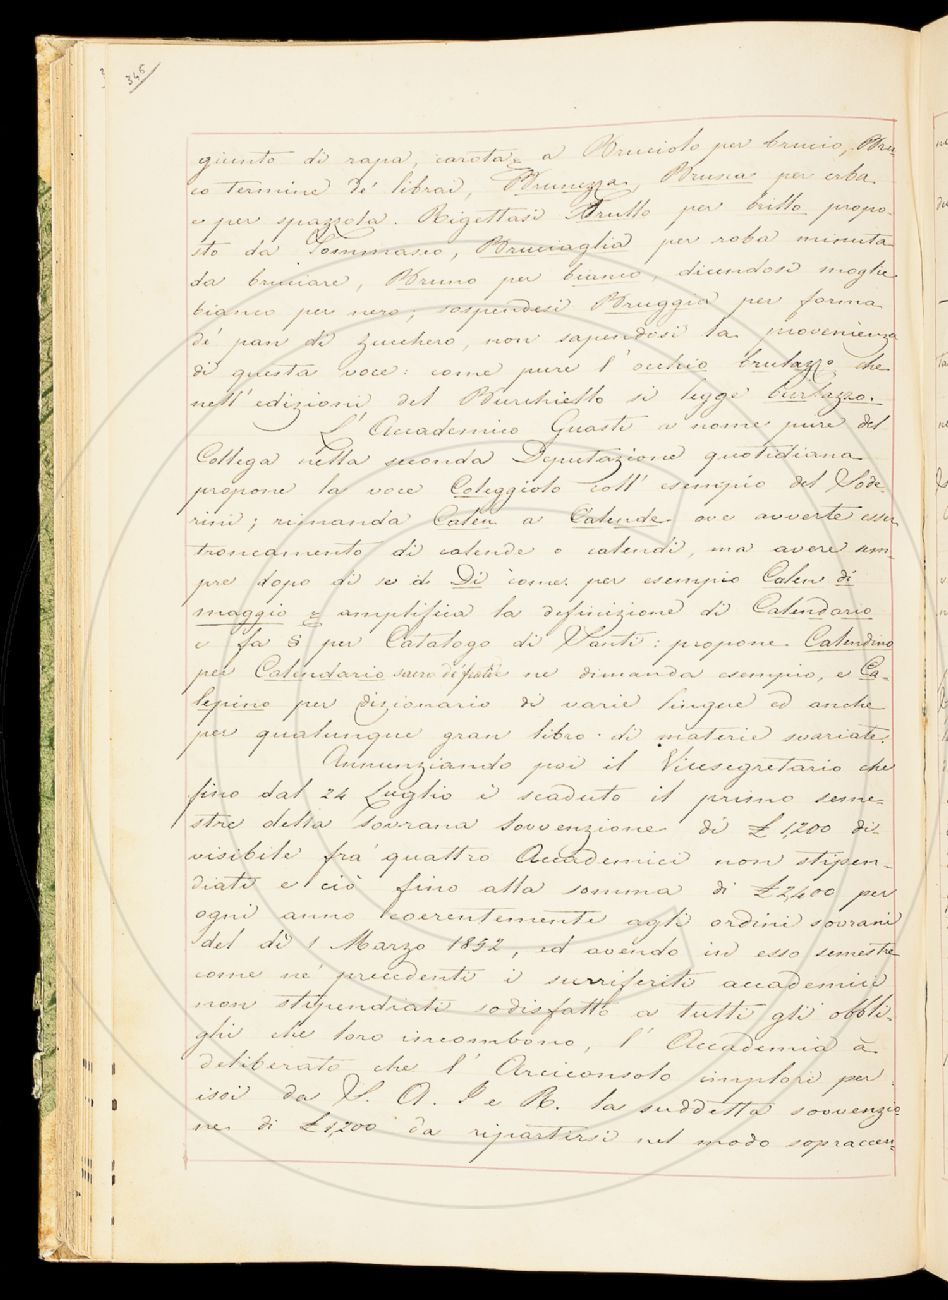 345
giunto di rapa, carota e a Bruciolo per brucio, Bru-
co termine de' librai, Brunezza, Brusca per erba
e per spazzola. Rigettasi Brullo per brillo propo-
sto da Tommaseo, Bruciaglia per roba minuta
da bruciare, Bruno per bianco, dicendosi moglie
bianco per nero; sospendesi Bruggia per forma
di pan di zucchero, non sapendosi la provenienza
di questa voce: come pure l'occhio brulazzo che
nell'edizioni del Burchiello si legge burlazzo.
L'Accademico Guasti a nome pure del
Collega nella seconda Deputazione quotidiana
propone la voce Caleggiolo coll'esempio del Sode-
rini; rimanda Calen a Calende ove avverte esser
troncamento di calende o calendi, ma avere sem-
pre dopo di se il Di come per esempio Calen di
maggio e amplifica la definizione di Calendario
e fa § per Catalogo di Santi: propone Calendino
per Calendario sacro de' frati ne dimanda esempio, e Ca-
lepino per dizionario di varie lingue ed anche
per qualunque gran libro di materie svariate.
Annunziando poi il Vicesegretario che
fino dal 24 Luglio è scaduto il primo seme-
stre della Sovrana Sovvenzione di £ 1,200 di-
visibile fra quattro Accademici non stipen-
diati e ciò fino alla somma di £ 2,400 per
ogni anno coerentemente agli ordini sovrani
del dì 1 Marzo 1852, ed avendo in esso semestre
come ne' precedenti i surriferiti accademici
non stipendiati sodisfatto a tutti gli obbli-
ghi che loro incombono, l'Accademia à
deliberato che l'Arciconsolo implori per
isoi da S. A. I e R. la suddetta sovvenzio-
ne di £ 1,200 da ripartirsi nel modo sopraccen-